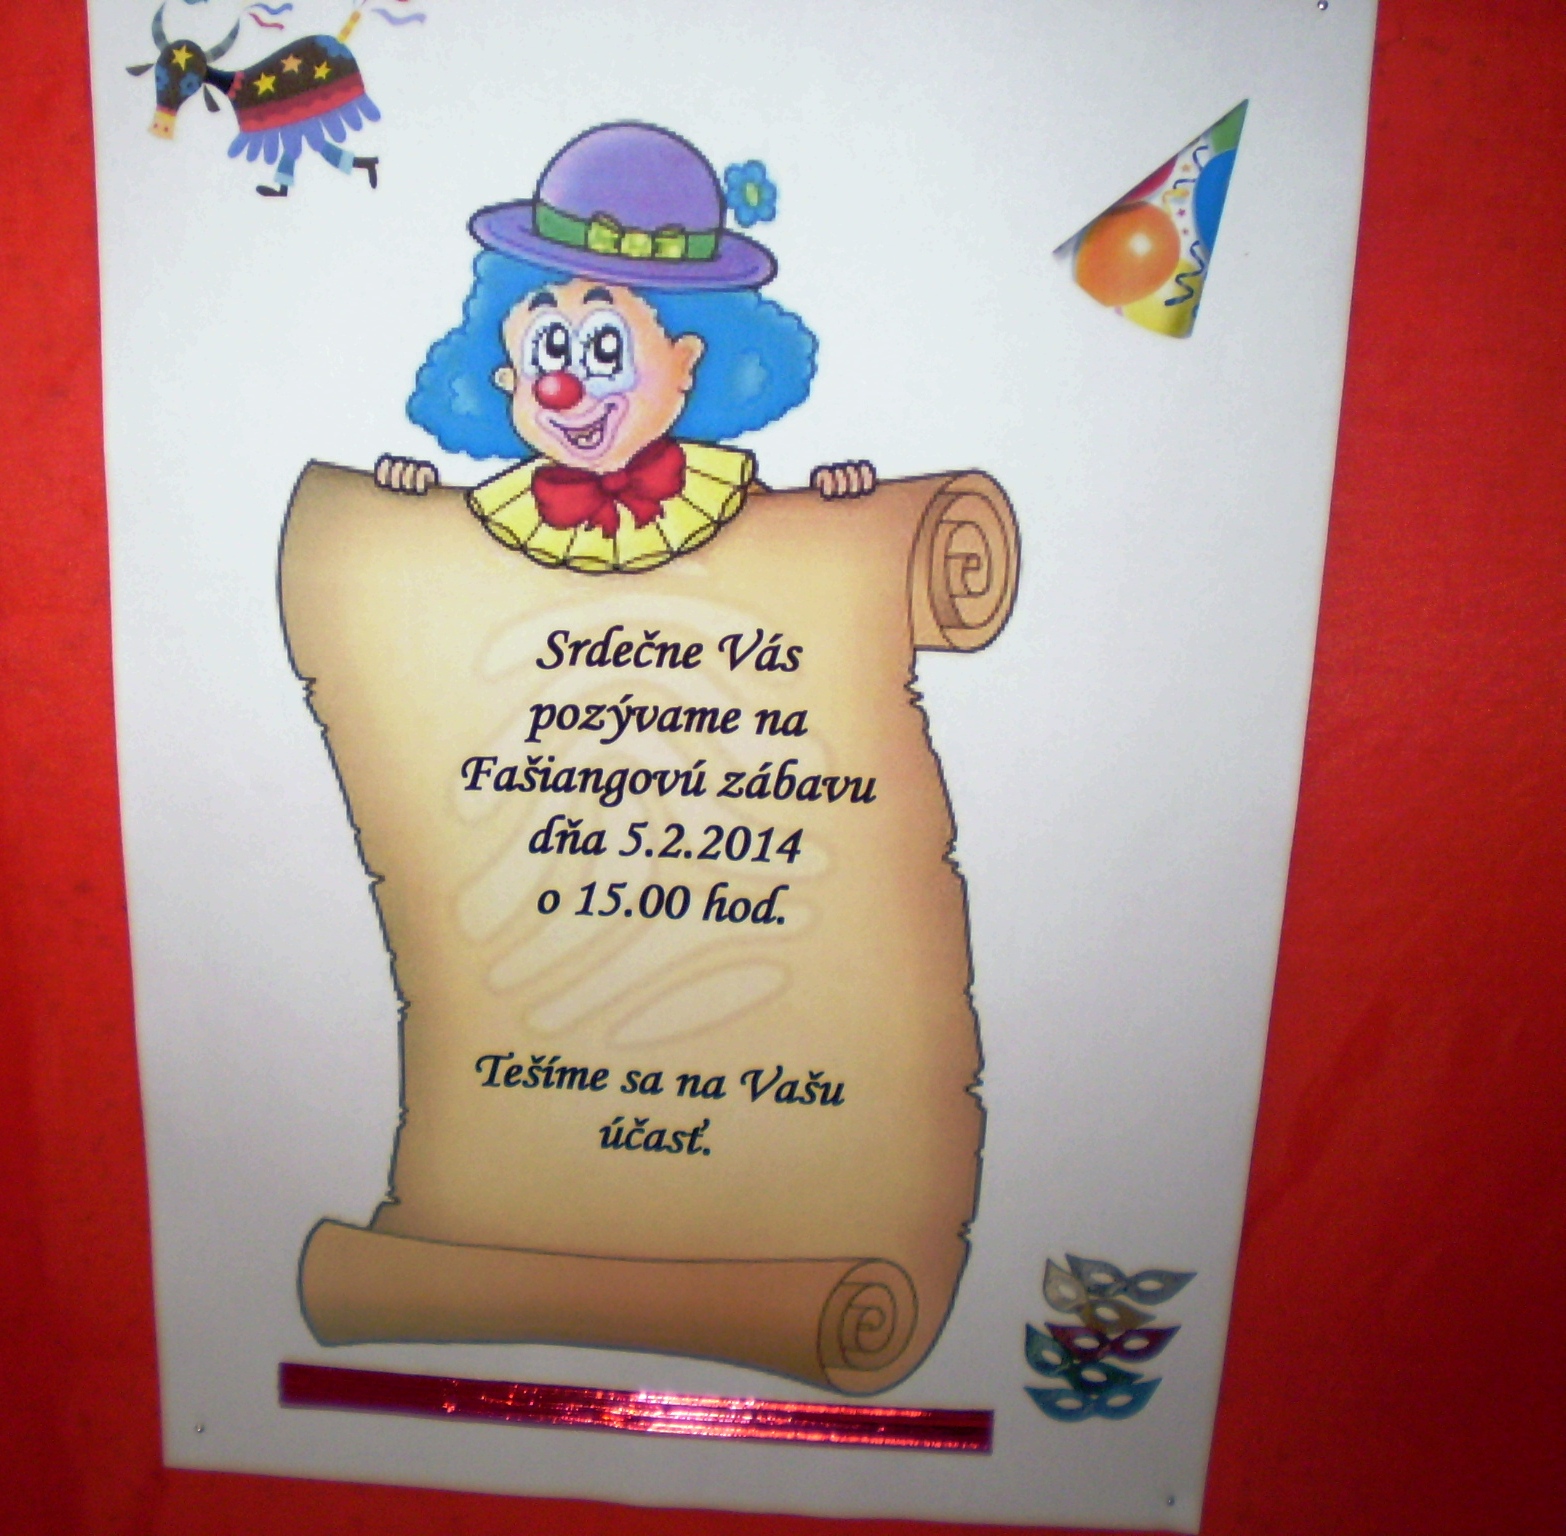 Srdečne Vás
pozývame na
Fašiangovú zábavu
dňa 5.2.2014
o 15.00 hod.
Tešíme sa na Vašu
účasť.